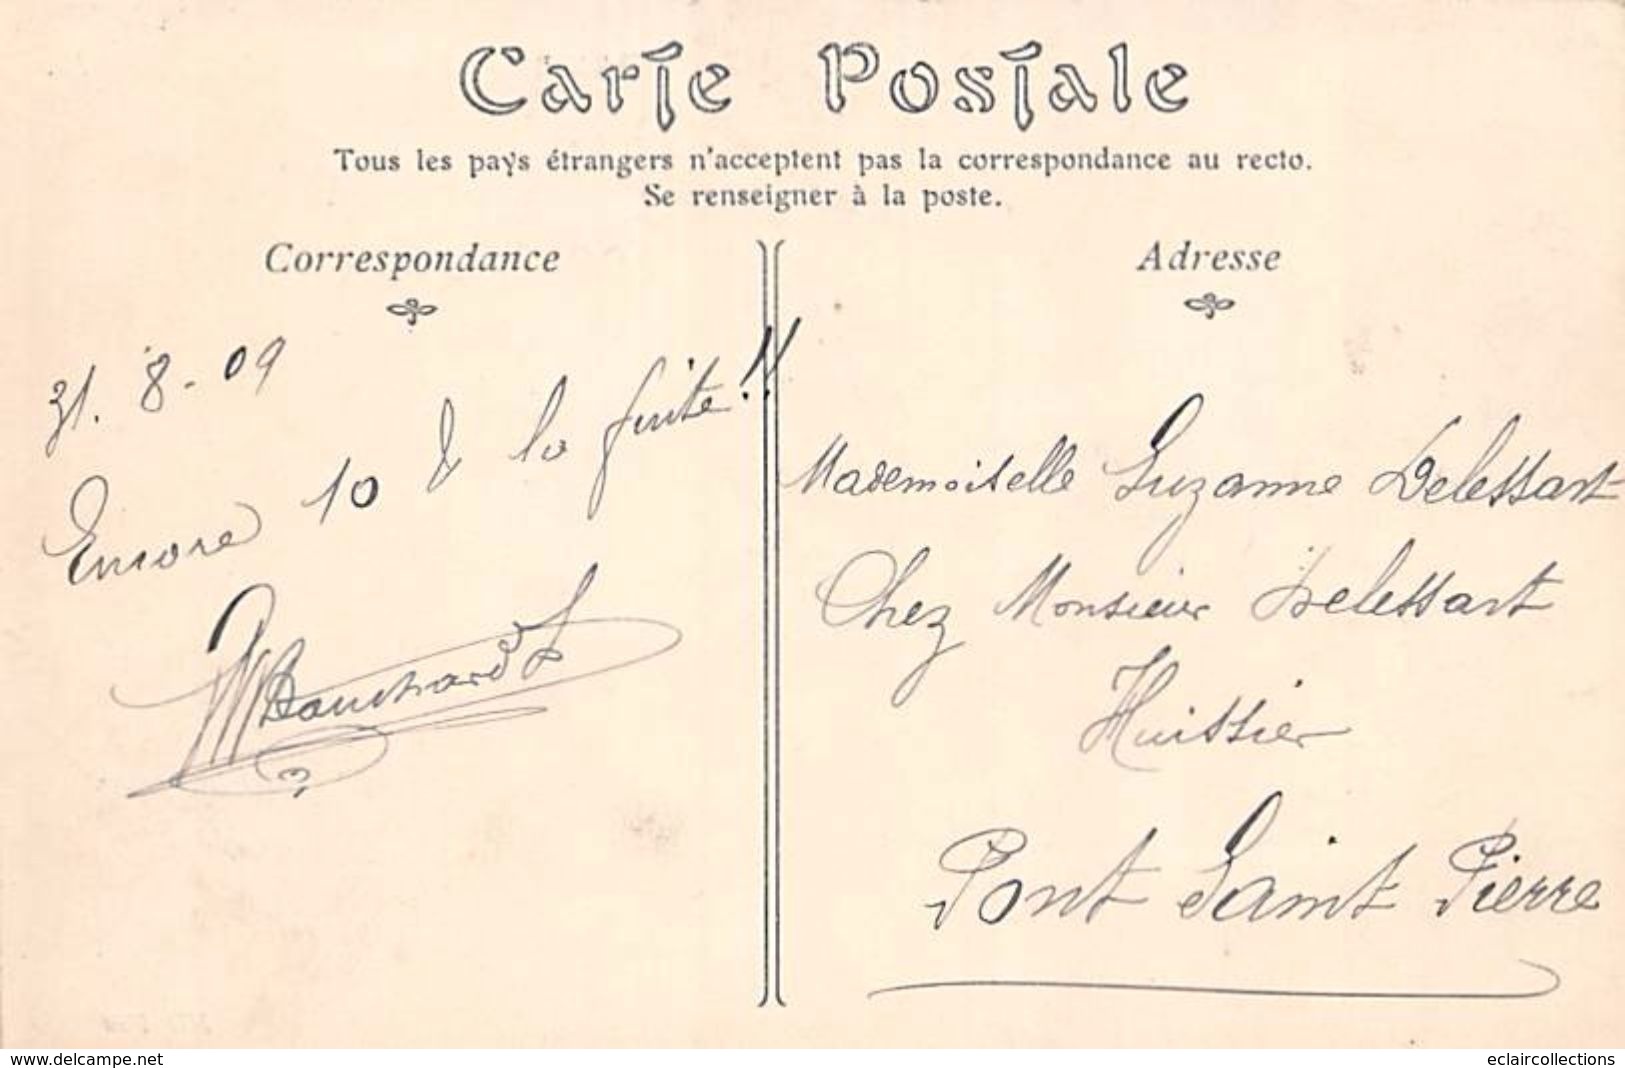 Carte Postale
Tous les pays étrangers n'acceptent pas la correspondance au recto.
Se renseigner à la poste.
Correspondance
31. 8 - 09
Encore 10 & la fuite !!
Bouchard
Adresse
Mademoiselle Suzanne Delessart
Chez Monsieur Delessart
Huissier
Pont Saint Pierre
www.delcampe.net
eclaircollections